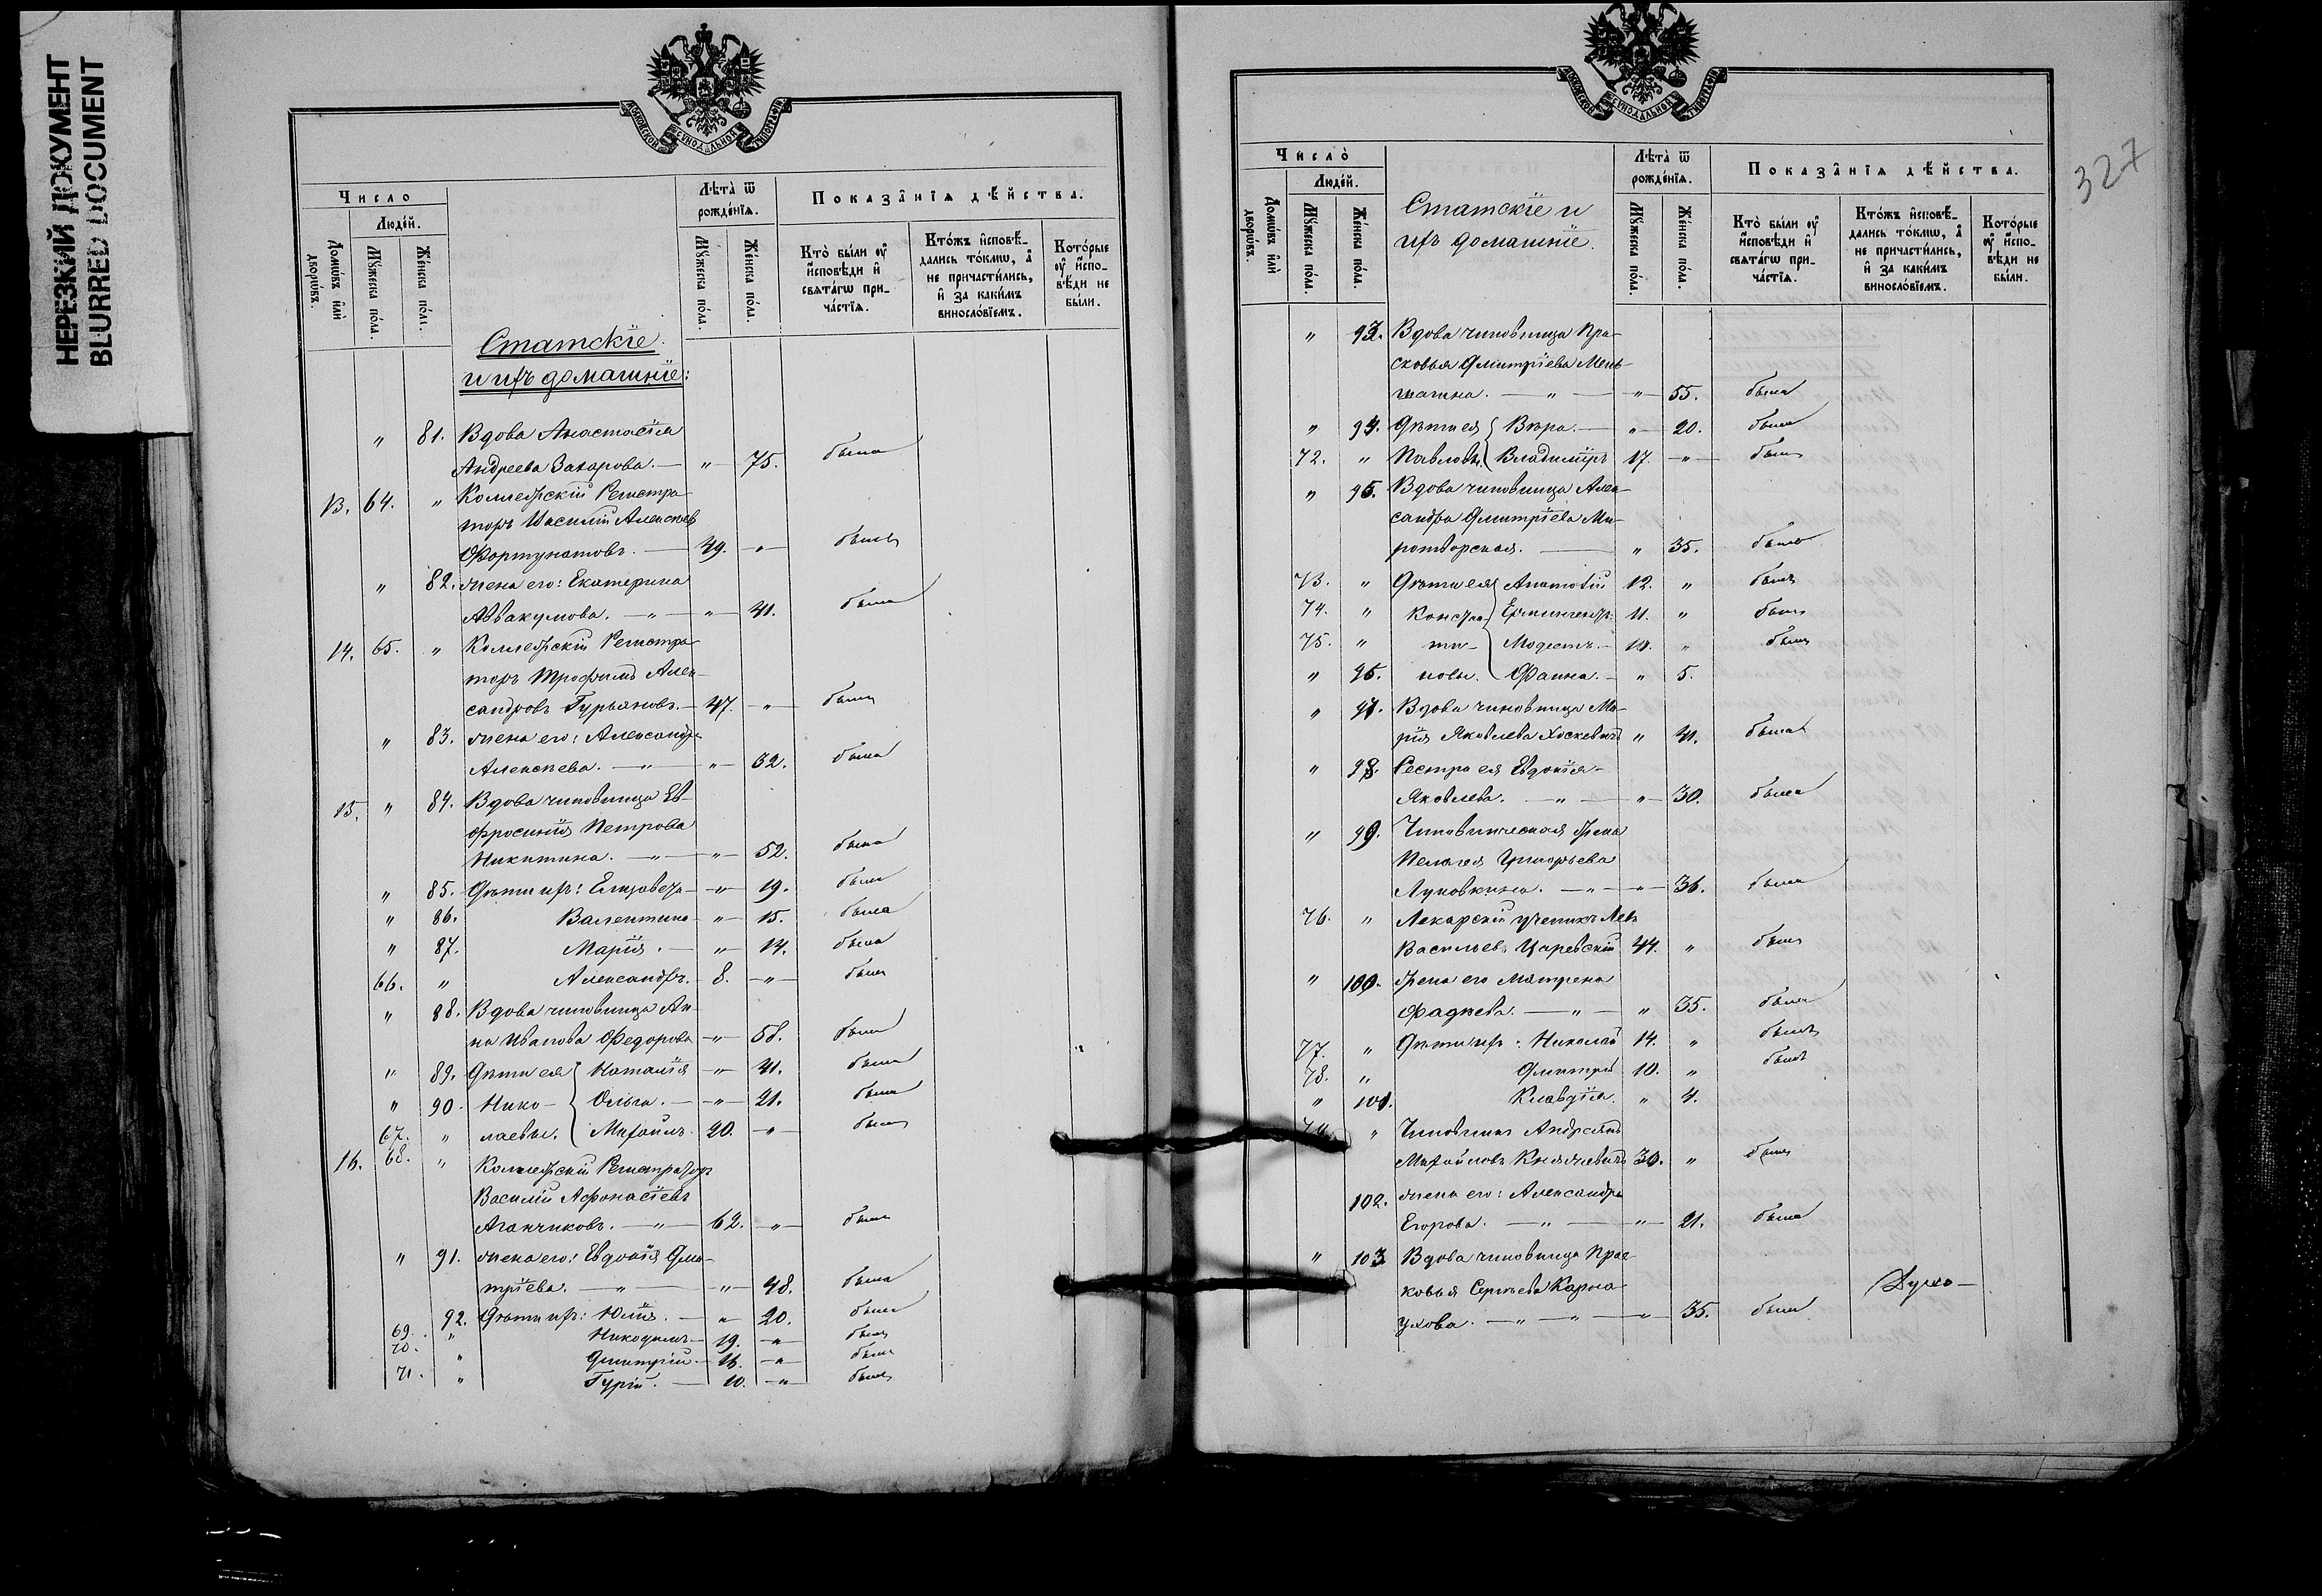 НЕРЕЗКИЙ ДОКУМЕНТ
BLURRED DOCUMENT
МОСКОВСКОЙ СѴНОДАЛЬНОЙ ТИПОГРАФІИ
Число
Людéй.
Домѡ́въ и҆лѝ дворѡ́въ.
Мꙋ́жеска по́ла.
Же́нска по́ла.
Статскіе
и ихъ домашніе:
Лѣта̀ ѿ рожде́нїѧ.
Мꙋ́жеска по́ла.
Же́нска по́ла.
Показа̑нїѧ дѣ́йства.
Кто̀ бы́ли ᲂу҆ и҆сповѣ́ди и҆ свѧта́гѡ прича́стїѧ.
Кто́жъ и҆сповѣ́дались то́кмѡ, а҆ не причасти́лись, и҆ за каки́мъ винословїемъ.
Кото́рые ᲂу҆ и҆сповѣ́ди не бы́ли.
" 81. Вдова Анастасія
Андреева Захарова. — " — 75. была
13. 64. " Коллежскій Регистра-
торъ Василій Алексѣевъ
Фортунатовъ. — 49. — " былъ
" 82. жена его: Екатерина
Аввакумова. — " — " — 41. была
14. 65. " Коллежскій Регистра-
торъ Трофимъ Алек-
сандровъ Гурьяновъ. — 47. — " былъ
" 83. жена его: Александра
Алексѣева. — " — " — 32. была
15. " 84. Вдова чиновница Ев-
фросинія Петрова
Никитина. — " — " — 52. была
" 85. Дѣти ихъ: Елизавета — " — 19. была
" 86. Валентина — " — 15. была
" 87. Марія. — " — 14. была
66. " Александръ. — 8. — " былъ
" 88. Вдова чиновница Ан-
на Иванова Федорова — " — 58. была
" 89. Дѣти ея Наталія — " — 41. была
" 90. Нико- Ольга. — " — 21. была
67. " лаевы. Михаилъ. 20. — " былъ
16. 68. " Коллежскій Регистраторъ
Василій Афонасіевъ
Аганчиковъ. — " — 62. — " былъ
" 91. жена его: Евдокія Дми-
тріева. — " — " — 48. была
92. Дѣти ихъ: Юлія. — " — 20. была
69. " Никодимъ. — 19. — " былъ
70. " Дмитрій. — 16. — " былъ
71. " Гурій. — 10. — " былъ
327
МОСКОВСКОЙ СѴНОДАЛЬНОЙ ТИПОГРАФІИ
Число̀
Людéй.
Домѡ́въ и҆лѝ дворѡ́въ.
Мꙋ́жеска по́ла.
Же́нска по́ла.
Статскіе и
ихъ домашніе.
Лѣта̀ ѿ рожде́нїѧ.
Мꙋ́жеска по́ла.
Же́нска по́ла.
Показа̑нїѧ дѣ́йства.
Кто̀ бы́ли ᲂу҆ и҆сповѣ́ди и҆ свѧта́гѡ прича́стїѧ.
Кто́жъ и҆сповѣ́дались то́кмѡ, а҆ не причасти́лись, и҆ за каки́мъ винословїемъ.
Кото́рые ᲂу҆ и҆сповѣ́ди не бы́ли.
" 93. Вдова чиновница Пра-
сковья Дмитріева Мень-
шагина. — " — " — 55. была
" 94. Дѣти ея Вѣра. — " — 20. была
72. " Павловы. Владиміръ 17. — " былъ
" 95. Вдова чиновница Алек-
сандра Дмитріева Ми-
ротворская. — " 35. была
73. " Дѣти ея Анатолій 12. " былъ
74. " Констан- 11. " былъ
75. " ти- Модестъ. — 10. " былъ
" 96. новы. Фаина. — " 5.
" 97. Вдова чиновница Ма-
рія Яковлева " 41. была
" 98. Сестра ея Евдокія
Яковлева. — " — " — 30. была
" 99. Чиновническая жена
Пелагея Григорьева
Луковкина. — " — " — 36. была
76. " Лекарскій ученикъ Левъ
Васильевъ Царевскій 44. " былъ
" 100. жена его Матрена
Фадѣева. — " — " 35. была
77. " Дѣти ихъ: Николай 14. " былъ
78. " Дмитрій 10. " былъ
" 101. Клавдія. " 4.
79. " Чиновникъ Андреянъ
Михайловъ Княжевичъ 30. " былъ
102. жена его: Александра
Егорова. — " — " — 21. была
" 103 Вдова чиновница Прас-
ковья Сергѣева Карна-
ухова. — " — " — " — 35. была
Духо-